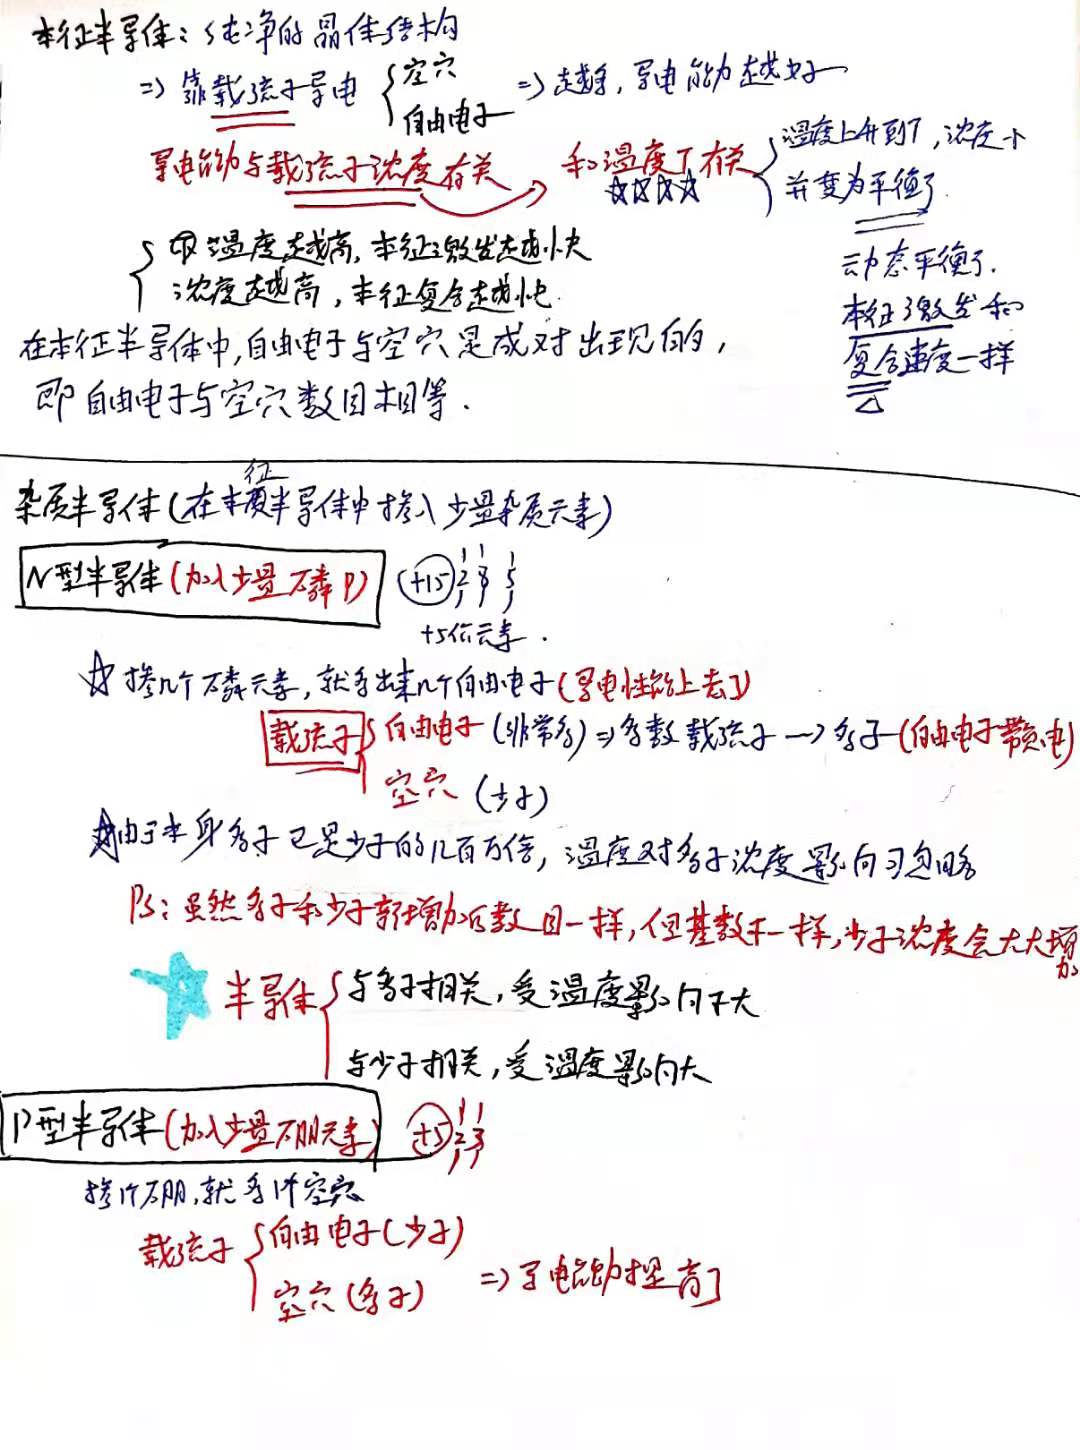 本征半导体：纯净的晶体结构
=> 靠载流子导电 { 空穴 自由电子 => 越多，导电能力越好
导电能力与载流子浓度有关 和温度T有关 { 温度上升到T，浓度↑
并变为平衡了
☆☆☆☆
动态平衡了.
本征激发和
复合速度一样
{ 即温度越高，本征激发越快
浓度越高，本征复合越快.
在本征半导体中，自由电子与空穴是成对出现的，
即自由电子与空穴数目相等.
杂质半导体(在本征半导体中掺入少量杂质元素)
N型半导体(加入少量磷P) +15 2 8 5
+5价元素.
☆掺几个磷元素，就多出来几个自由电子(导电性能上去了)
载流子 { 自由电子(非常多) => 多数载流子 -> 多子(自由电子带负电)
空穴(少子)
☆由于本身多子已是少子的几百万倍，温度对多子浓度影响可忽略
Ps：虽然多子和少子新增加的数目一样，但基数不一样，少子浓度会大大增加
半导体 { 与多子相关，受温度影响不大
与少子相关，受温度影响大
P型半导体(加入少量硼元素) +5 2 3
掺1个硼，就多1个空穴
载流子 { 自由电子(少子)
空穴(多子) => 导电能力提高了